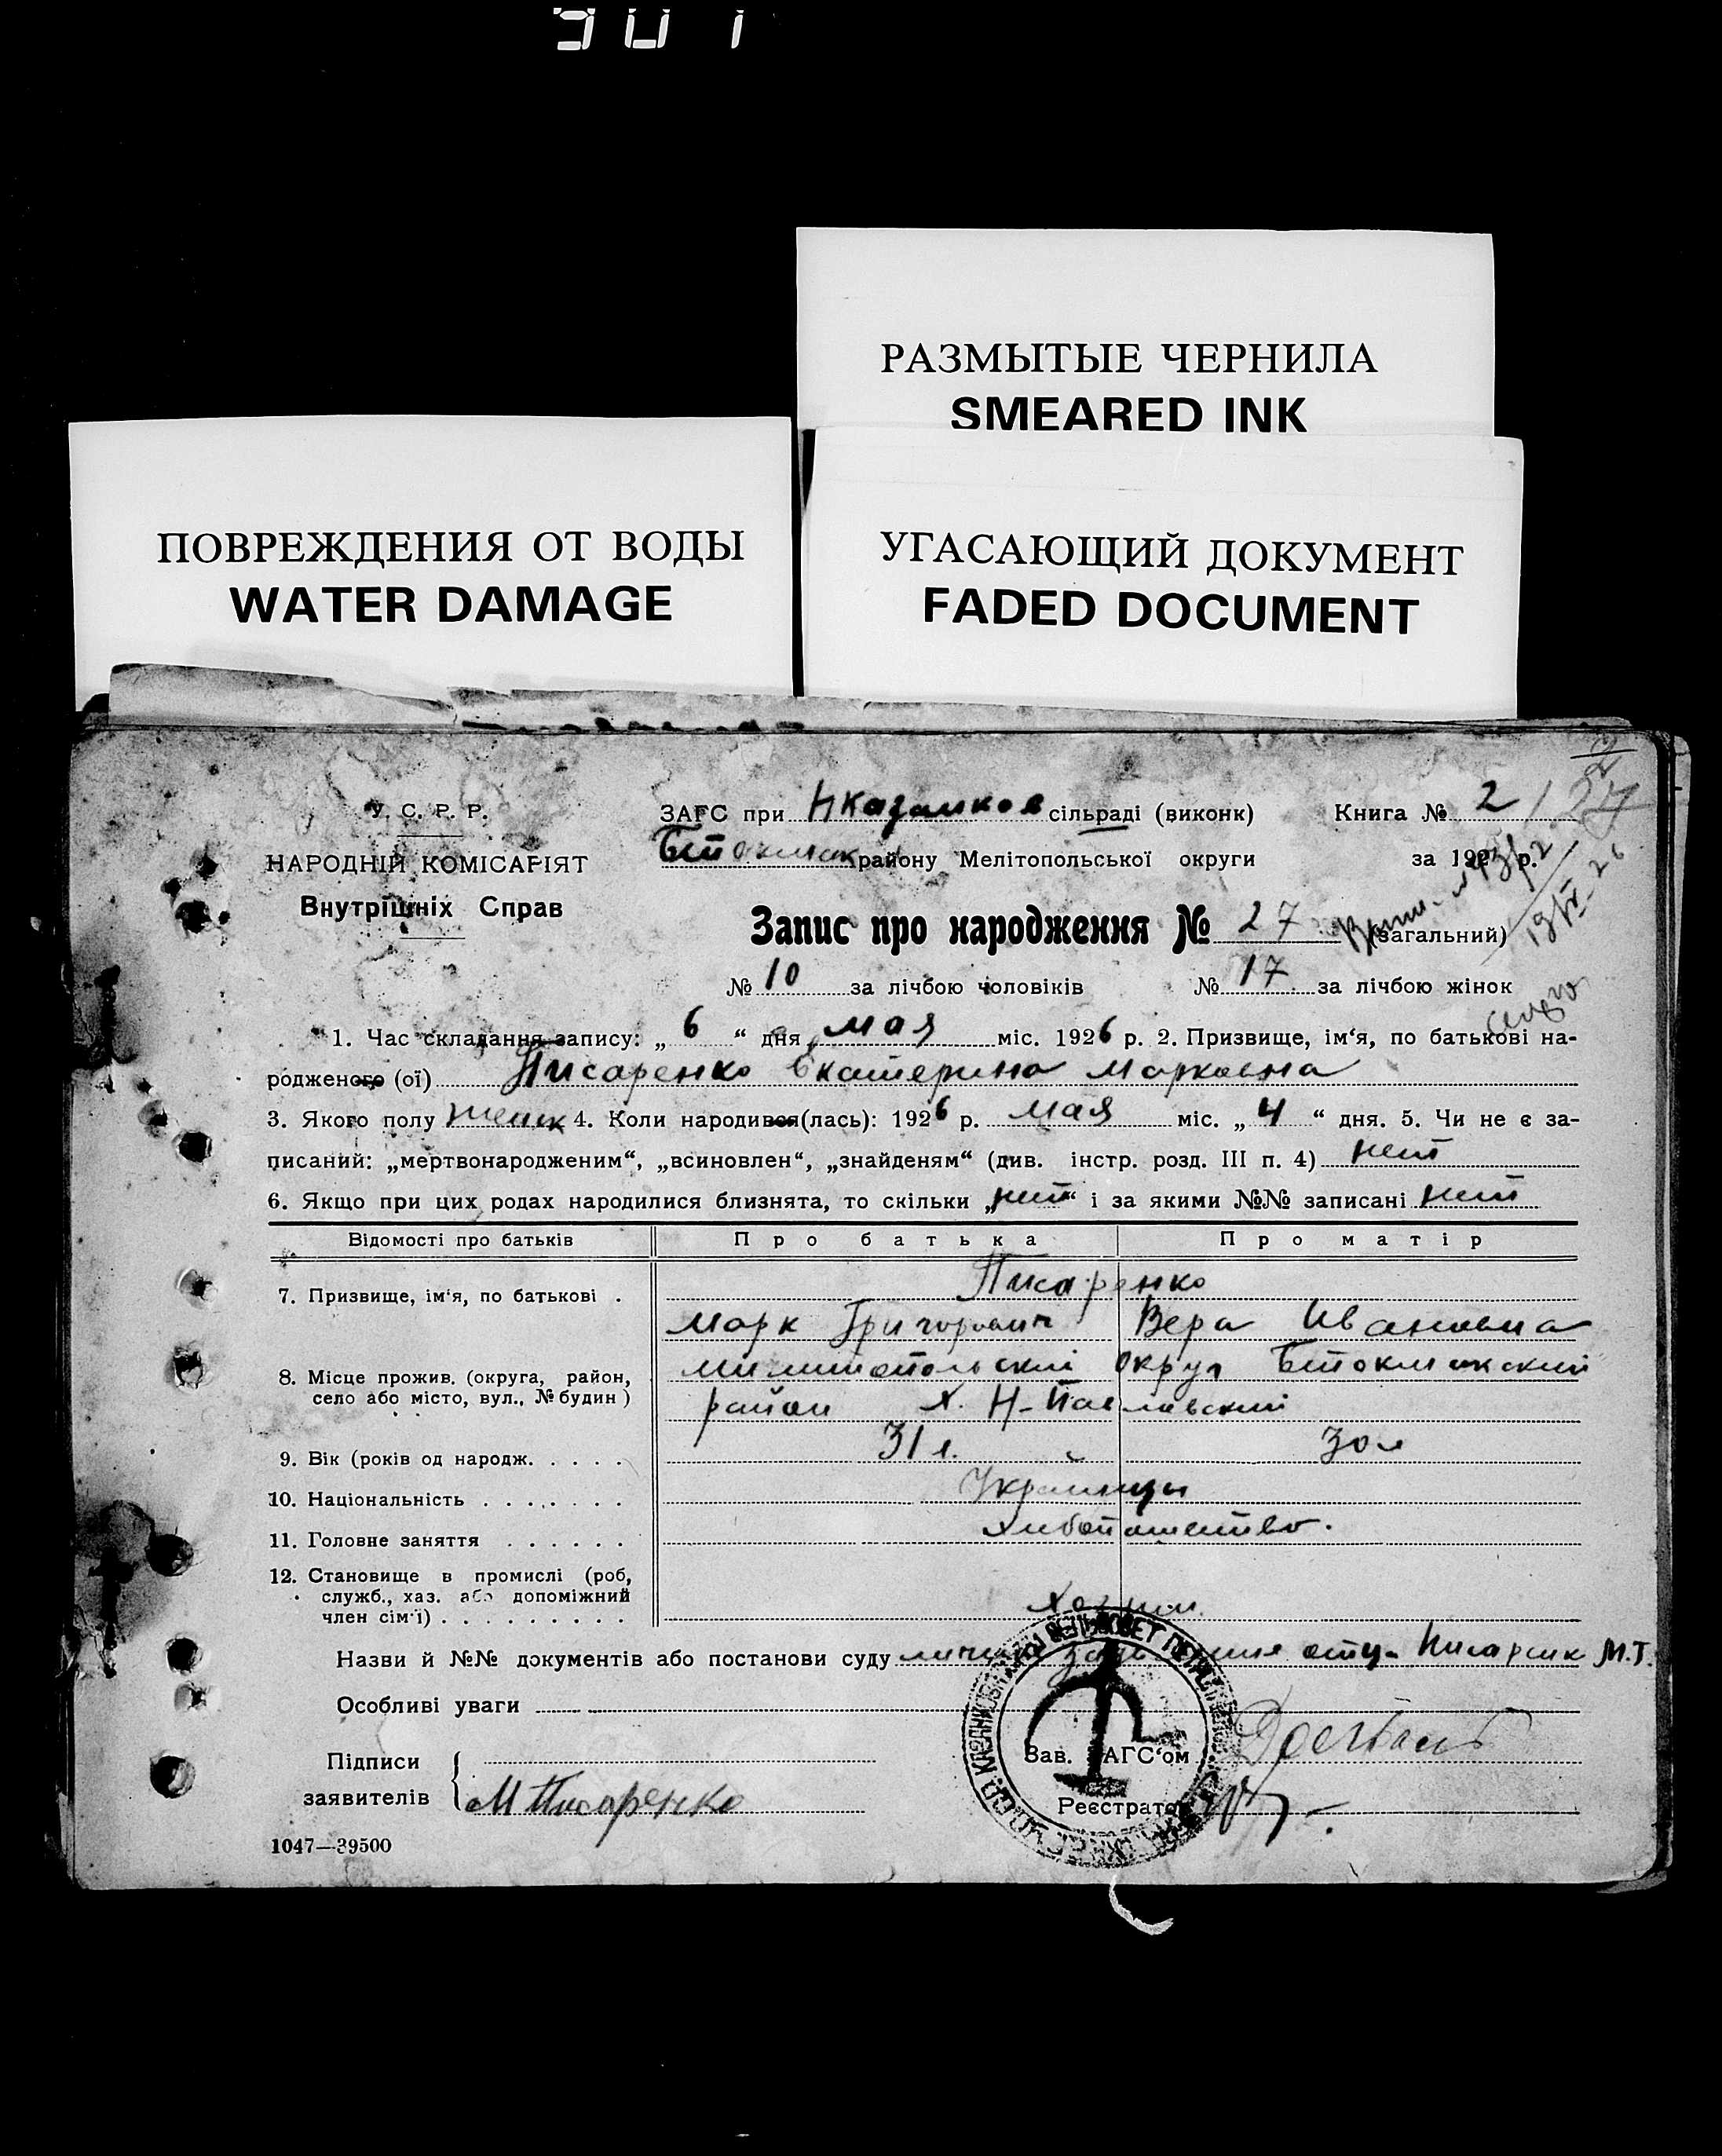 901
РАЗМЫТЫЕ ЧЕРНИЛА
SMEARED INK
ПОВРЕЖДЕНИЯ ОТ ВОДЫ
WATER DAMAGE
УГАСАЮЩИЙ ДОКУМЕНТ
FADED DOCUMENT
У. С. Р. Р.
НАРОДНІЙ КОМІСАРІЯТ
Внутрішніх Справ
ЗАГС при Нказанков сільраді (виконк) Книга № 2 / 27
Бтокмак району Мелітопольської округи за 192 р.
Запис про народження № 27 (загальний)
№ 10 за лічбою чоловіків № 17 за лічбою жінок
1. Час складання запису: „ 6 “ дня мая міс. 1926 р. 2. Призвище, ім‘я, по батькові на-
родженого (ої) Писаренко Екатерина Марковна
3. Якого полу женск 4. Коли народився(лась): 1926 р. мая міс. „ 4 “ дня. 5. Чи не є за-
писаний: „мертвонародженим“, „всиновлен“, „знайденям“ (див. інстр. розд. III п. 4) нет
6. Якщо при цих родах народилися близнята, то скільки „нет“ і за якими №№ записані нет
Відомості про батьків Про батька Про матір
7. Призвище, ім‘я, по батькові . Писаренко
Марк Григорович Вера Ивановна
8. Місце прожив. (округа, район, село або місто, вул., № будин)
Милитопольский округ Бтокмакский
район х. Н-Павловский
9. Вік (років од народж. . . . . 31 л. 30 л
10. Національність . . . . . . . Украинцы
11. Головне заняття . . . . . . хлебопашество.
12. Становище в промислі (роб,
служб., хаз. або допоміжний
член сім‘ї) . . . . . . . . .
Назви й №№ документів або постанови суду отца Писаренк М.Г.
Особливі уваги
Підписи
заявителів
М Писаренко
Зав. ЗАГС‘ом
Реєстратор
1047—39500